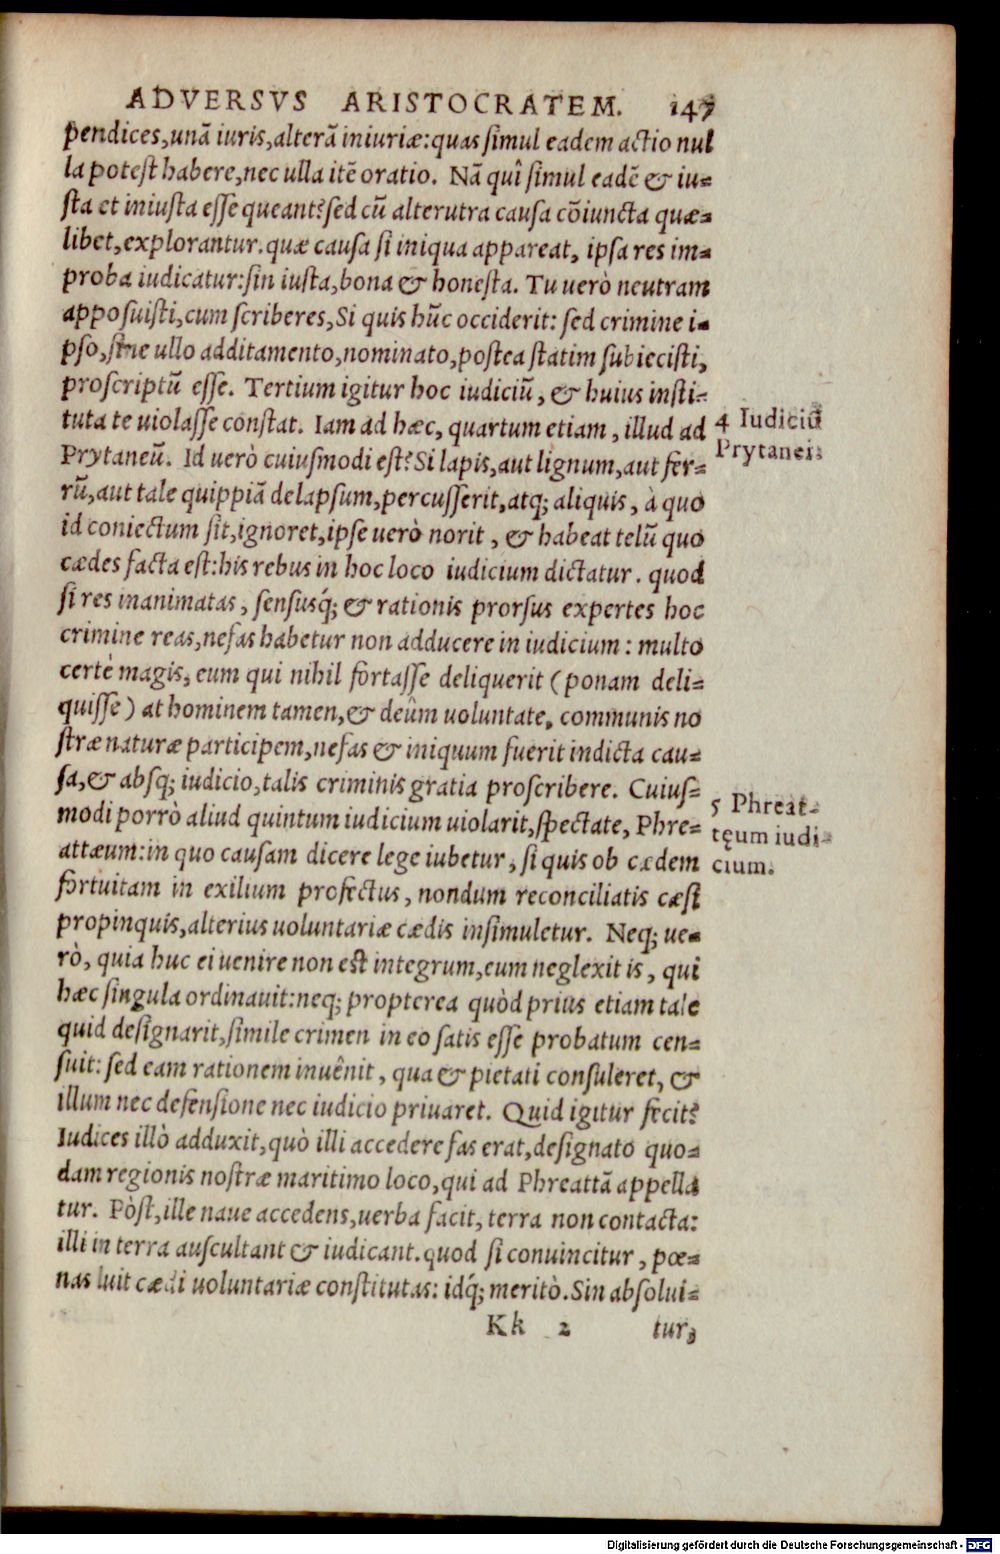 ADVERSVS ARISTOCRATEM. 147
pendices,unã iuris,alterã iniuriæ:quas simul eadem actio nul
la potest habere,nec ulla itē oratio. Nã quî simul eadē & iu-
sta et iniusta esse queant?sed cū alterutra causa cōiuncta quæ-
libet,explorantur.quæ causa si iniqua appareat, ipsa res im-
proba iudicatur:sin iusta,bona & honesta. Tu uerò neutram
apposuisti,cum scriberes,Si quis hūc occiderit: sed crimine i-
pso,sine ullo additamento,nominato,postea statim subiecisti,
proscriptū esse. Tertium igitur hoc iudiciū, & huius insti-
tuta te uiolasse constat. Iam ad hæc, quartum etiam, illud ad
4 Iudiciū
Prytanei.
Prytaneū. Id uerò cuiusmodi est?Si lapis,aut lignum,aut fer-
rū,aut tale quippiã delapsum,percusserit,atq; aliquis, à quo
id coniectum sit,ignoret,ipse uerò norit, & habeat telū quo
cædes facta est:his rebus in hoc loco iudicium dictatur. quod
si res inanimatas, sensusq́; & rationis prorsus expertes hoc
crimine reas,nefas habetur non adducere in iudicium: multo
certè magis, eum qui nihil fortasse deliquerit (ponam deli-
quisse) at hominem tamen,& deûm uoluntate, communis no
stræ naturæ participem,nefas & iniquum fuerit indicta cau-
sa,& absq; iudicio,talis criminis gratia proscribere. Cuius-
modi porrò aliud quintum iudicium uiolarit,spectate, Phre-
5 Phreat-
tęum iudi-
cium.
attæum:in quo causam dicere lege iubetur, si quis ob cædem
fortuitam in exilium profectus, nondum reconciliatis cæsi
propinquis,alterius uoluntariæ cædis insimuletur. Neq; ue-
rò, quia huc ei uenire non est integrum,eum neglexit is, qui
hæc singula ordinauit:neq; propterea quòd prius etiam tale
quid designarit,simile crimen in eo satis esse probatum cen-
suit: sed eam rationem inuênit, qua & pietati consuleret, &
illum nec defensione nec iudicio priuaret. Quid igitur fecit?
Iudices illò adduxit,quò illi accedere fas erat,designato quo-
dam regionis nostræ maritimo loco,qui ad Phreattã appella
tur. Pòst,ille naue accedens,uerba facit, terra non contacta:
illi in terra auscultant & iudicant.quod si conuincitur, pœ-
nas luit cædi uoluntariæ constitutas: idq́; meritò.Sin absolui-
Kk 2 tur,
Digitalisierung gefördert durch die Deutsche Forschungsgemeinschaft - DFG